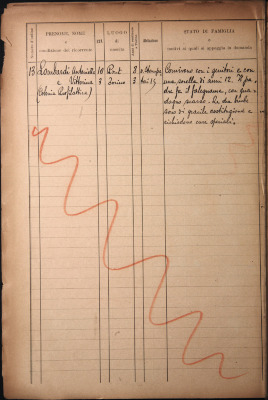 COGNOME, NOME
e
condizione del ricorrente
ETÀ
LUOGO
di
nascita
Abitazione
STATO DI FAMIGLIA
e
motivi ai quali si appoggia la domanda
13 Lombardi Antonietta 10 Pont 8
e Vittorina 3 3
(Colonia Profilattica)
Convivono con i genitori e con
una sorella di anni 12. Il pa-
dre fa il falegname, con gua-
dagno scarso. Le due bimbe
sono di gracile costituzione e
richiedono cure speciali.